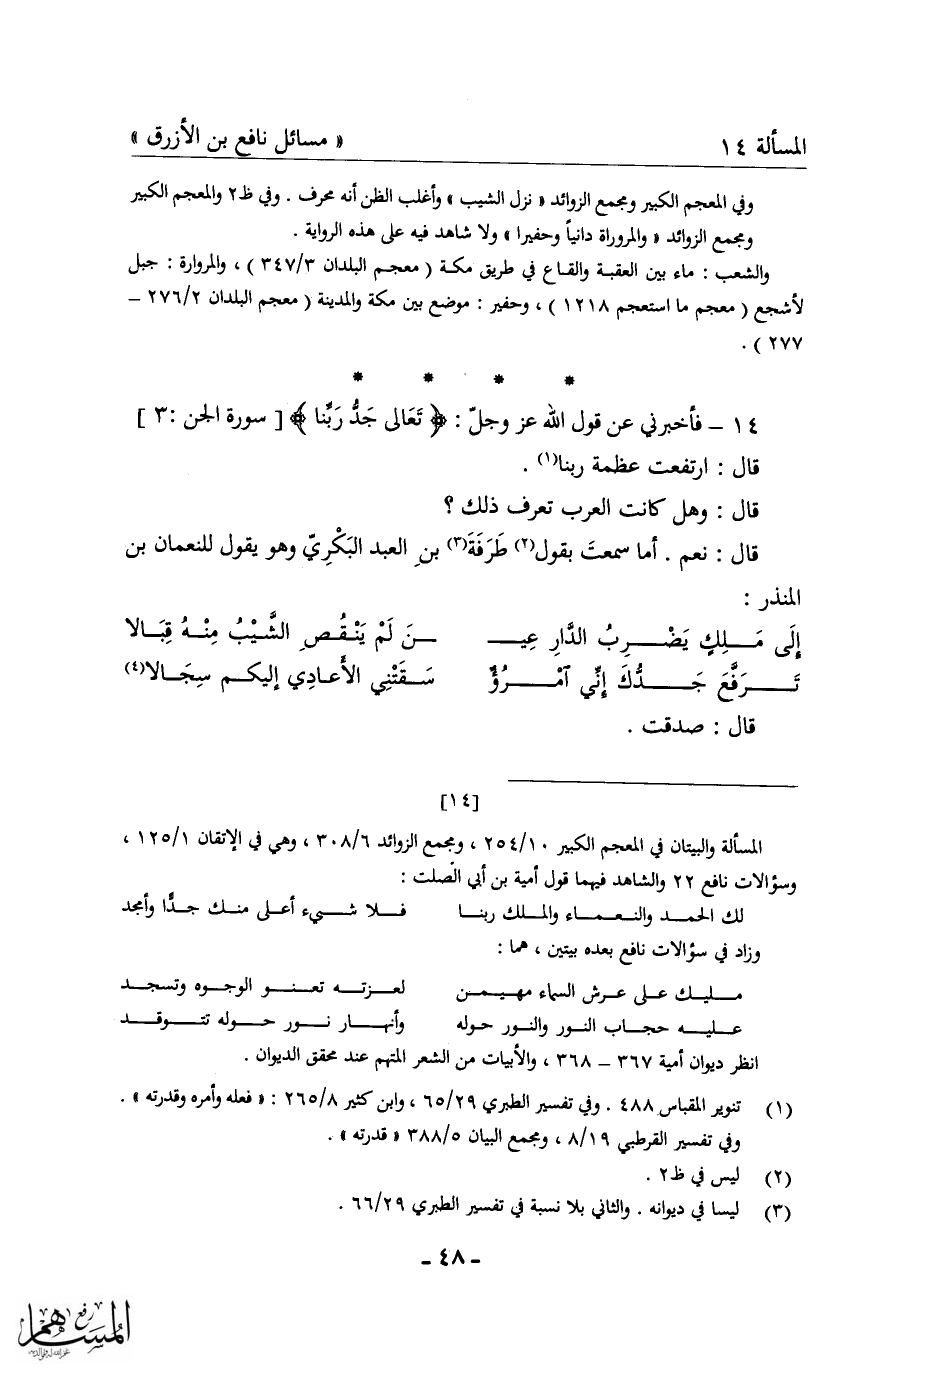 المسألة ١٤ « مسائل نافع بن الأزرق »
وفي المعجم الكبير ومجمع الزوائد « نزل الشيب » وأغلب الظن أنه محرف . وفي ظ٢ والمعجم الكبير
ومجمع الزوائد « والمروراة دانياً وحفيرا » ولا شاهد فيه على هذه الرواية .
والشعب : ماء بين العقبة والقاع في طريق مكة ( معجم البلدان ٣٤٧/٣ ) ، والمروارة : جبل
لأشجع ( معجم ما استعجم ١٢١٨ ) ، وحفير : موضع بين مكة والمدينة ( معجم البلدان ٢٧٦/٢ –
٢٧٧ ) .
* * * *
١٤ – فأخبرني عن قول الله عز وجلّ : ﴿ تَعَالى جَدُّ رَبِّنا ﴾ [ سورة الجن :٣ ]
قال : ارتفعت عظمة ربنا(١) .
قال : وهل كانت العرب تعرف ذلك ؟
قال : نعم . أما سمعتَ بقول(٢) طَرَفَةَ(٣) بنِ العبد البَكْرِيّ وهو يقول للنعمان بن
المنذر :
إلَى مَلِكٍ يَضْرِبُ الدَّارِ عِيـ ـنَ لَمْ يَنْقُصِ الشَّيْبُ مِنْهُ قِبَالا
تَرَفَّعَ جَدُّكَ إنِّي آمْرُؤٌ سَقَتْنِي الأَعادِي إليكم سِجَالا(٤)
قال : صدقت .
[١٤]
المسألة والبيتان في المعجم الكبير ٢٥٤/١٠ ، ومجمع الزوائد ٣٠٨/٦ ، وهي في الإتقان ١٢٥/١ ،
وسؤالات نافع ٢٢ والشاهد فيهما قول أمية بن أبي الصلت :
لك الحمد والنعماء والملك ربنا فلا شيء أعلى منك جدًّا وأمجد
وزاد في سؤالات نافع بعده بيتين ، هما :
مليك على عرش السماء مهيمن لعزته تعنو الوجوه وتسجد
عليه حجاب النور والنور حوله وأنهار نور حوله تتوقد
انظر ديوان أمية ٣٦٧ – ٣٦٨ ، والأبيات من الشعر المتهم عند محقق الديوان .
(١) تنوير المقباس ٤٨٨ . وفي تفسير الطبري ٦٥/٢٩ ، وابن كثير ٢٦٥/٨ : « فعله وأمره وقدرته » .
وفي تفسير القرطبي ٨/١٩ ، ومجمع البيان ٣٨٨/٥ « قدرته » .
(٢) ليس في ظ٢ .
(٣) ليسا في ديوانه . والثاني بلا نسبة في تفسير الطبري ٦٦/٢٩ .
- ٤٨ -
رفع
المساهم